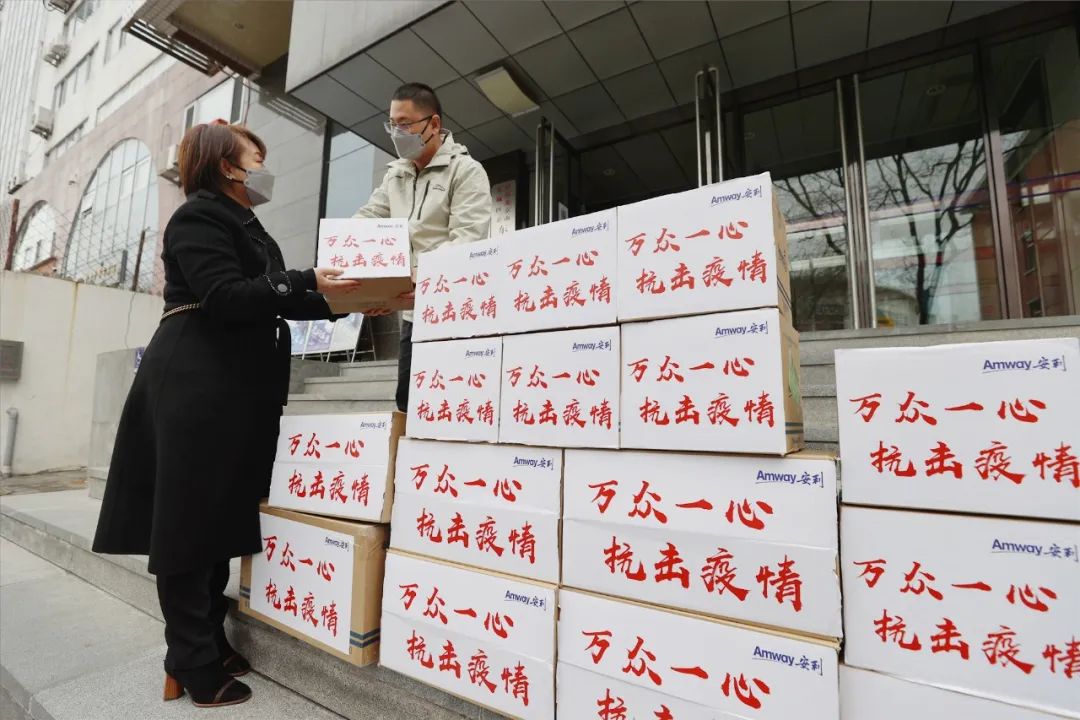 万众一心
抗击疫情
Amway 安利
万众一心
抗击疫情
Amway 安利
万众一心
抗击疫情
Amway 安利
万众一心
抗击疫情
Amway 安利
万众一心
抗击疫情
Amway 安利
万众一心
抗击疫情
Amway 安利
万众一心
抗击疫情
Amway 安利
万众一心
抗击疫情
Amway 安利
万众一心
抗击疫情
Amway 安利
万众一心
抗击疫情
Amway 安利
万众一心
抗击疫情
Amway 安利
万众一心
抗击疫情
Amway 安利
万众一心
抗击疫情
Amway 安利
万众一心
抗击疫情
Amway 安利
万众一心